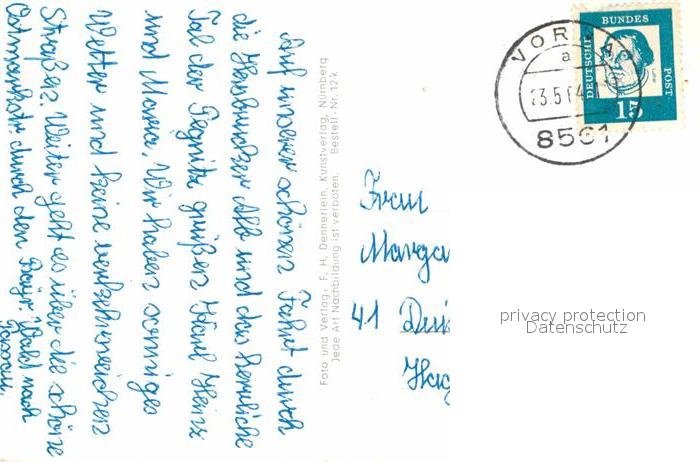 Auf unserer schönen Fahrt durch
die Hersbrucker Alb und das herrliche
Tal der Pegnitz grüßen Karl Heinz
und Maria. Wir haben sonniges
Wetter und keine verkehrsreichen
Straßen. Weiter geht es über die schöne
Ostmarkstr. durch den Bayr. Wald nach
Passau.
Foto und Verlag, F. H. Dennerlein, Kunstverlag, Nürnberg
Jede Art Nachbildung ist verboten. Bestell-Nr. 12k
DEUTSCHE BUNDES POST
Luther
15
VOR RA
a
23.5.64
8561
Frau
Marga
41 Duis
Hag
privacy protection
Datenschutz